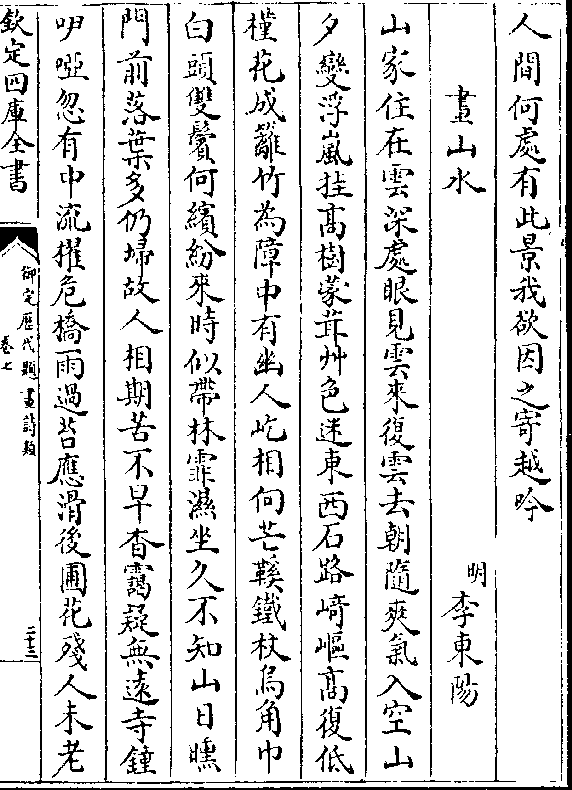 人間何處有此景我欲因之寄越吟
畫山水
明李東陽
山家住在雲深處眼見雲來復雲去朝隨爽氣入空山
夕變浮嵐挂高樹蒙茸艸色迷東西石路﨑嶇髙復低
槿花成籬竹為障中有幽人屹相向芒鞵鐵杖烏角巾
白頭雙鬢何繽紛來時似帶林霏濕坐久不知山日曛
門前落葉多仍埽故人相期苦不早杳靄疑無逺寺鐘
吚啞忽有中流櫂危橋雨過苔應滑後圃花殘人未老
欽定四庫全書
御定歴代題畫詩類
卷七
二十三